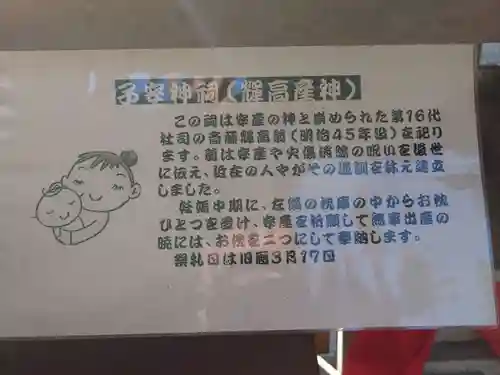 子安神祠(健高産神)
この祠は安産の神と崇められた第16代
社司の斎藤健高翁(明治45年没)を祀り
ます。翁は安産や火傷消除の呪いを後世
に伝え、近在の人々がその遺訓を称え建立
しました。
妊娠中期に、左脇の枕庫の中からお枕
ひとつを受け、安産を祈願して無事出産の
暁には、お枕を二つにして奉納します。
祭礼日は旧暦3月17日